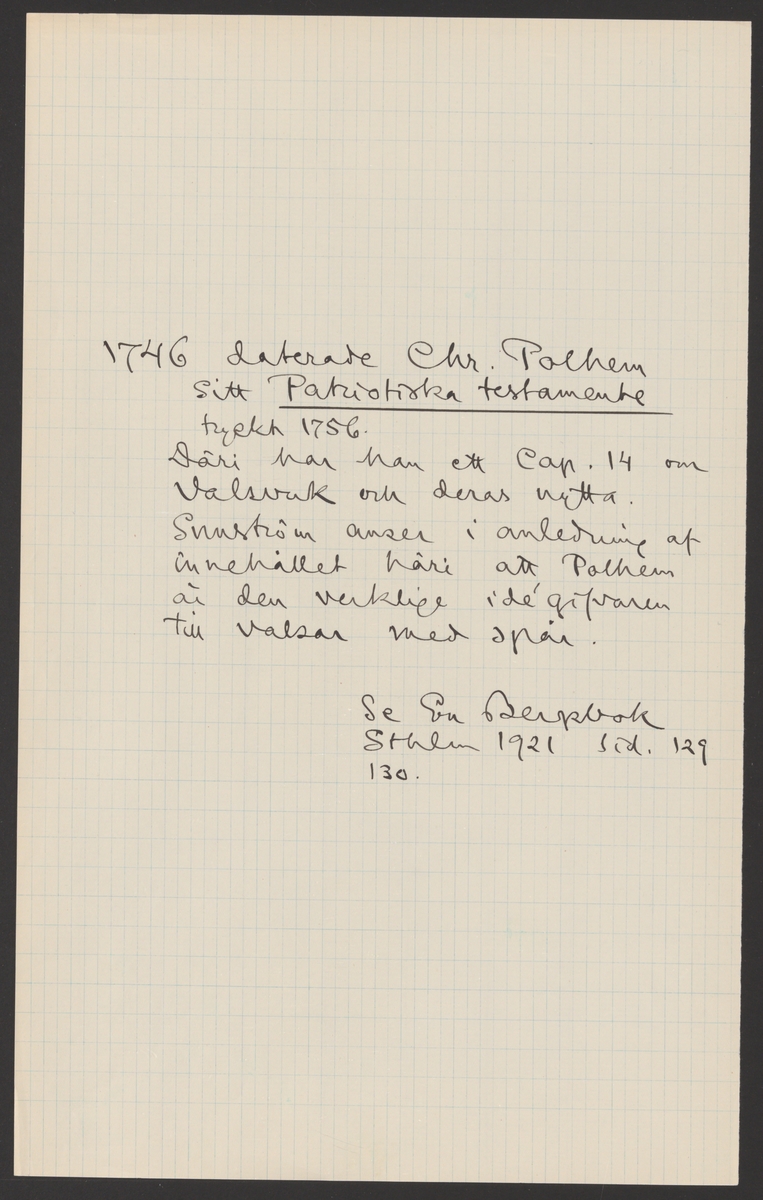 1746 daterade Chr. Polhem
sitt Patriotiska testamente
tryckt 1756.
Däri har han ett Cap. 14 om
Valsverk och deras nytta.
anser i anledning af
innehållet häri att Polhem
är den verklige idégifvaren
till valsar med spår.
Se En Bergsbok
Sthlm 1921 sid. 129
130.